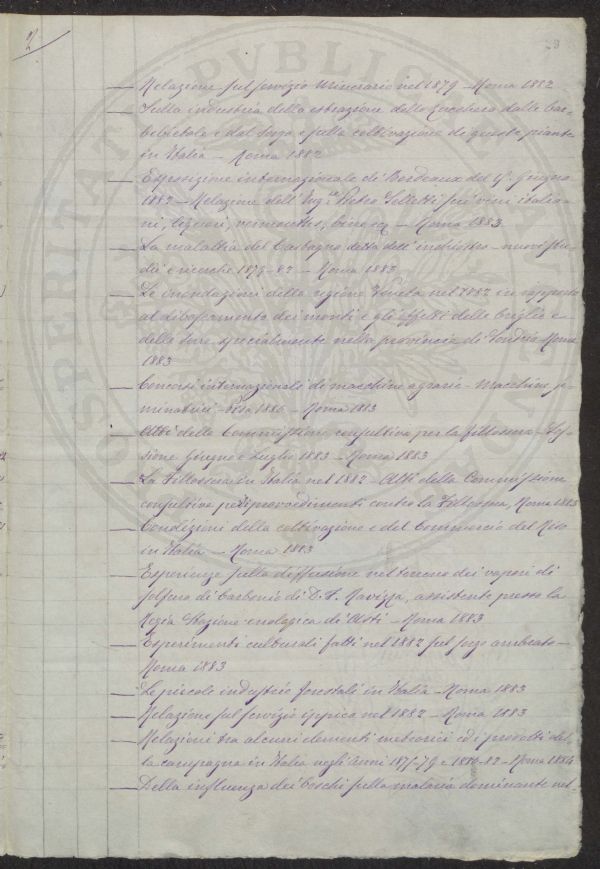 2
— Relazione sul servizio minerario nel 1879 — Roma 1882
— Sulla industria della estrazione dello Zucchero dalle bar=
babietole e dal sorgo e sulla coltivazione di queste piante
in Italia — Roma 1882
— Esposizione internazionale di Bordeaux del 1° Giugno
1882 — Relazione dell'Ing.re Pietro Selletti sui vini italia=
ni, liquori, vermouths, birre — Roma 1883
— La malattia del Castagno detta dell'inchiostro — nuovi stu=
di e ricerche 1879-82 — Roma 1883
— Le inondazioni della regione Veneta nel 1882 in rapporto
al disboscamento dei monti e gli effetti delle briglie e
delle serre, specialmente nella provincia di Sondrio — Roma
1883
— Concorsi internazionali di macchine agrarie — Macchine se=
minatrici — 1880 — Roma 1883
— Atti della Commissione consultiva per la fillossera — Ses=
sione Giugno e Luglio 1883 — Roma 1883
— La Fillossera in Italia nel 1882 — Atti della Commissione
consultiva provvedimenti contro la Fillossera, Roma 1883
— Condizioni della coltivazione e del Commercio del Riso
in Italia — Roma 1883
— Esperienze sulla diffusione nel terreno dei vapori di
solfuro di Carbonio di D. F. Ravizza, assistente presso la
Regia Stazione enologica di Asti — Roma 1883
— Esperimenti culturali fatti nel 1882 sul sorgo ambrato —
Roma 1883
— Le piccole industrie forestali in Italia — Roma 1883
— Relazione sul servizio ippico nel 1882 — Roma 1883
— Relazioni tra alcuni elementi meteorici ed i prodotti del=
la campagna in Italia negli anni 1875-79 e 1880-82 — Roma 1884
— Della influenza dei boschi sulla malaria dominante nel=